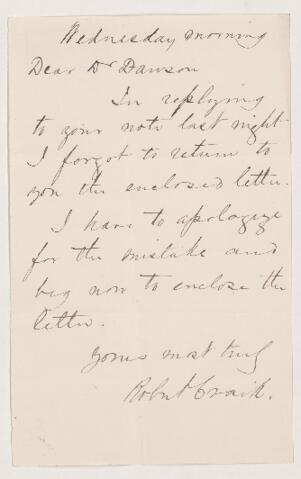 Wednesday morning
Dear Dr Dawson
In replying
to your note last night
I forgot to return to
you the enclosed letter.
I have to apologize
for the mistake and
beg now to enclose the
letter.
Yours most truly
Robert Craik.